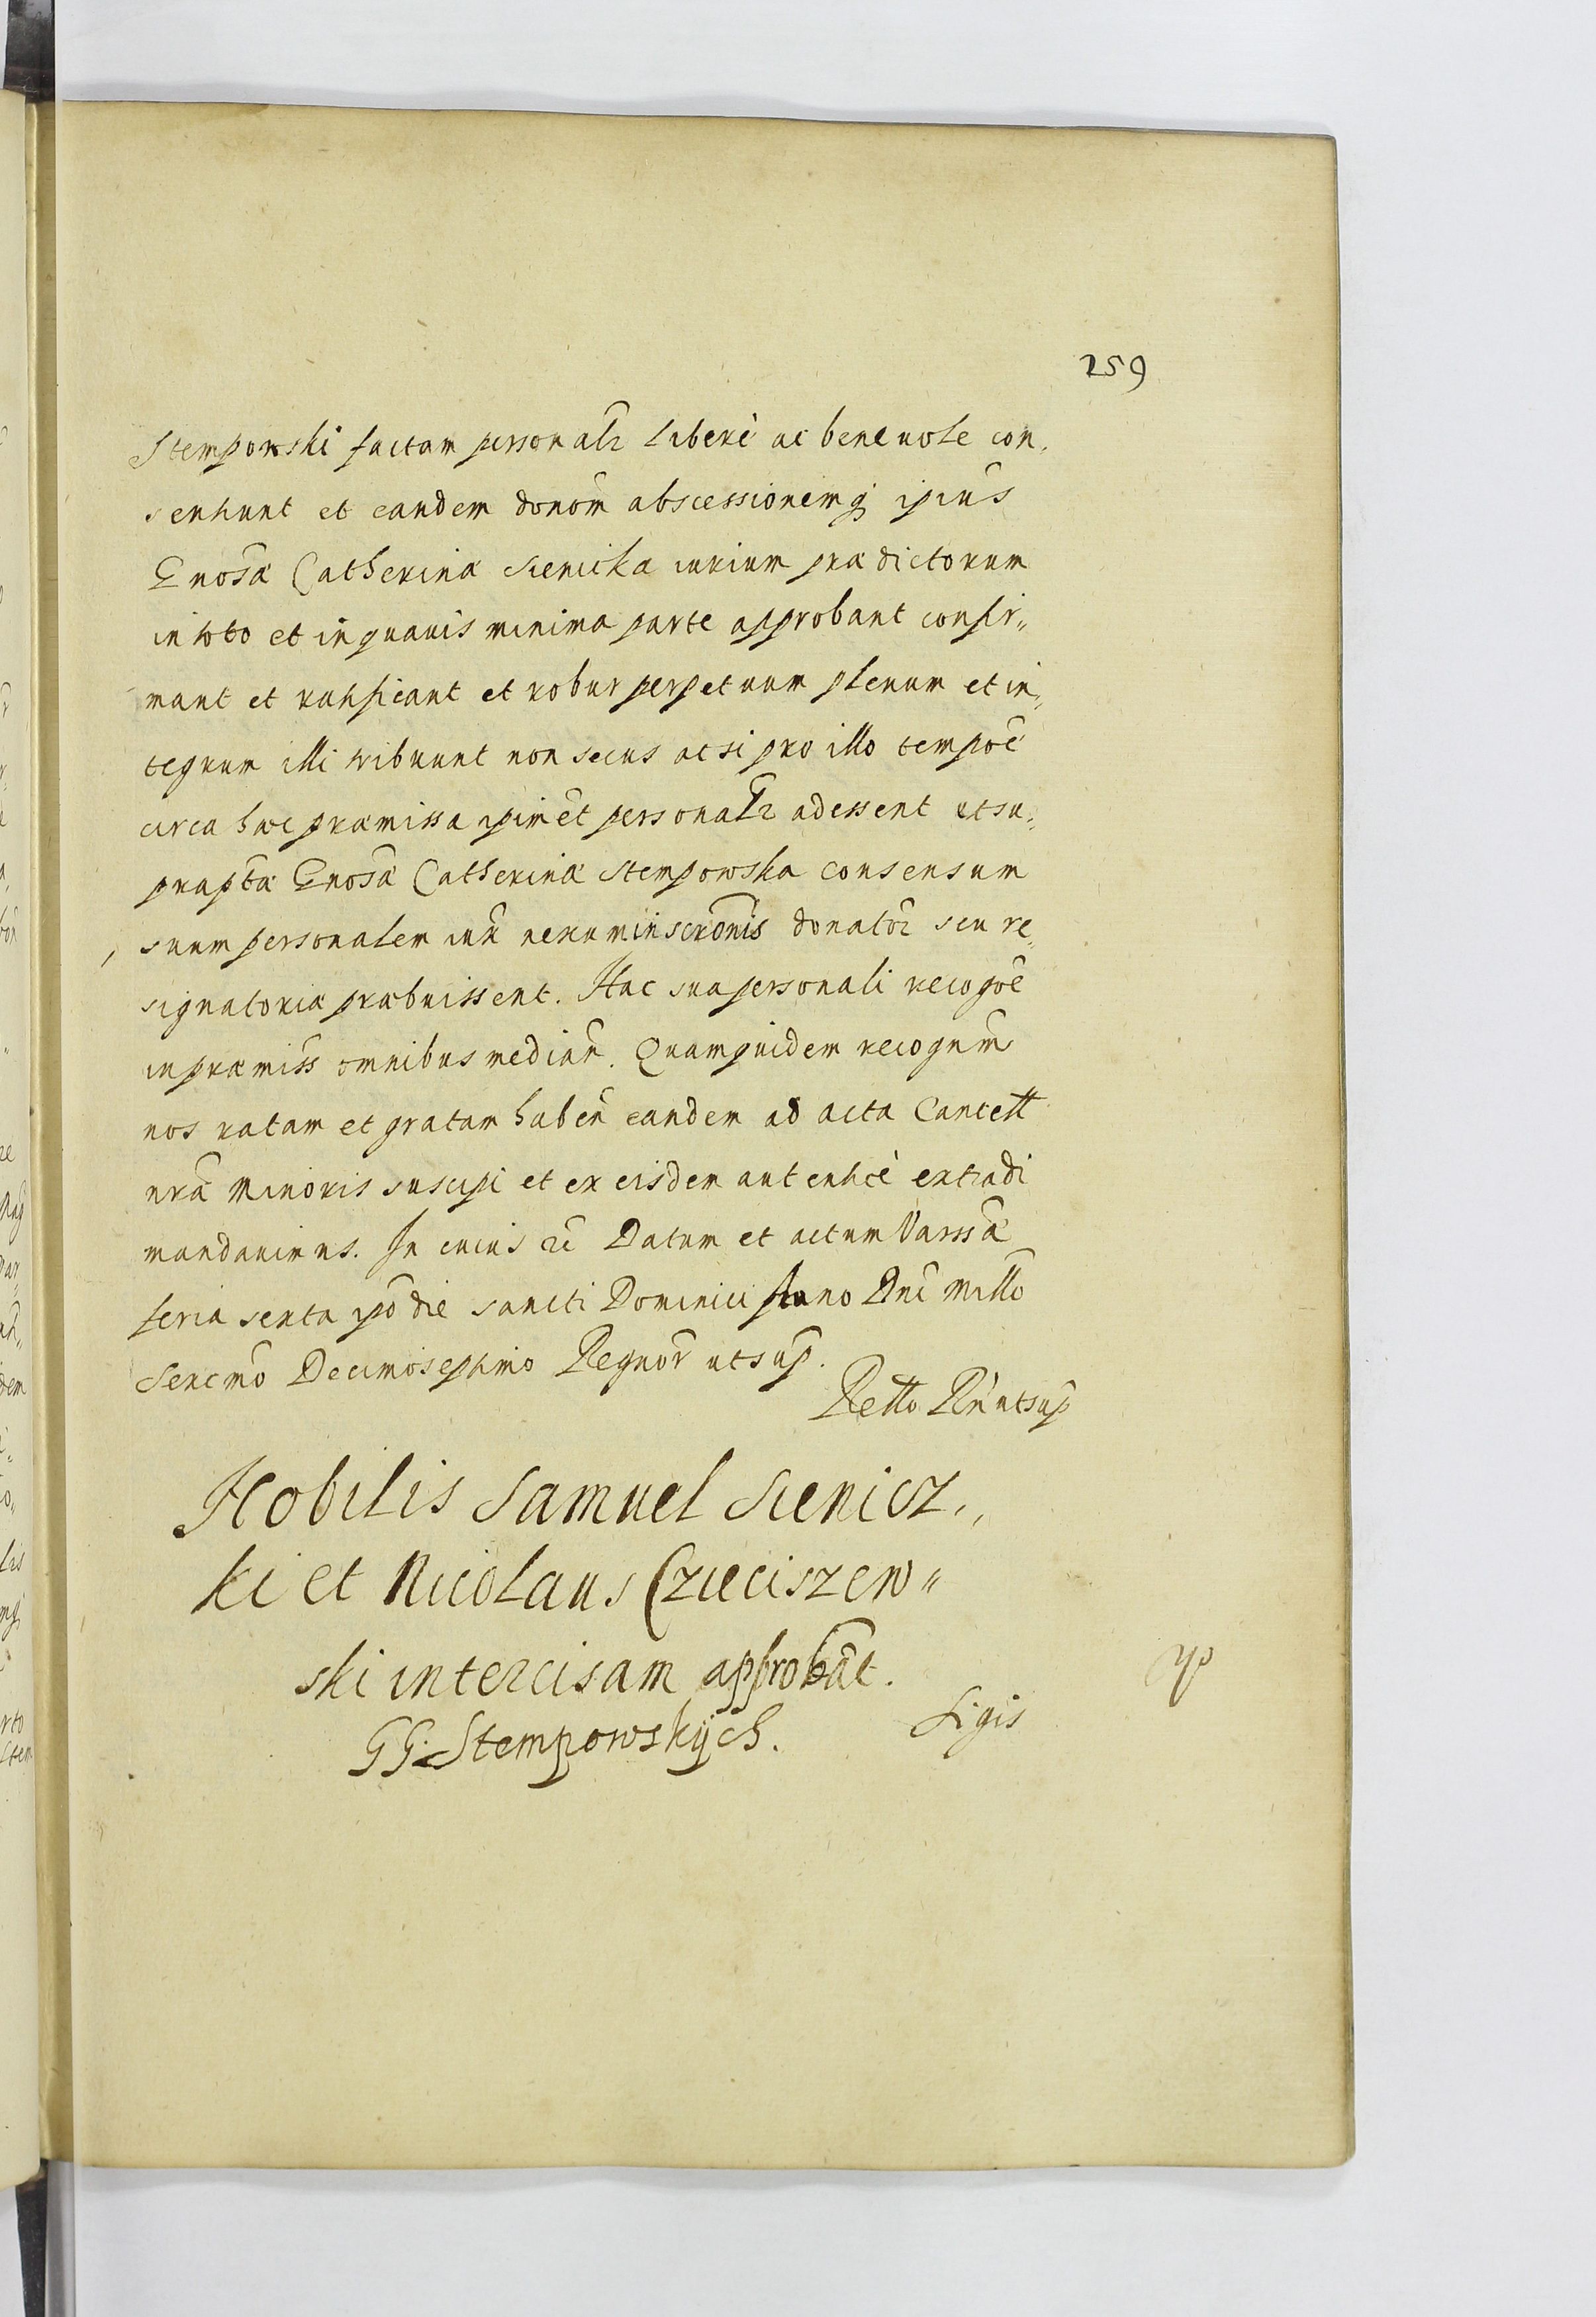 259
Stempowski factam personalr liberè ac beneuole con,
sentiunt et eandem donom abscessionemq ipius
Gnosæ Catherinæ Sienicka iurium prædictorum
in toto et in quauis minima parte approbant confir„
mant et ratificant et robur perpetuum plenum et in„
tegrum illi tribuunt non secus ac si pro illo tempoe
circa hæc præmissa ipimet personalr adessent et su„
prapta Gnosæ Catherinæ Stempowska consensum
suum personalem iuri rerum inscronis donator seu re„
signatoriæ præbuissent. Hac sua personali recogoe
in præmiss omnibus median. Quam quidem recognm
nos ratam et gratam haben eandem ad acta Cancell
nra Minoris suscipi et ex eisdem autenticè extradi
mandauimus. In cuius rei Datum et actum Varssæ
feria sexta ipo die sancti Dominici Anno Dni Millo
Sexcmo Decimoseptimo Regnor ut sup.
Retto Rn ut sup
Nobilis Samuel Sienicz„
ki et Nicolaus Czieciszew„
ski intercisam approbat.
GG. Stempowskÿch.
Sigis